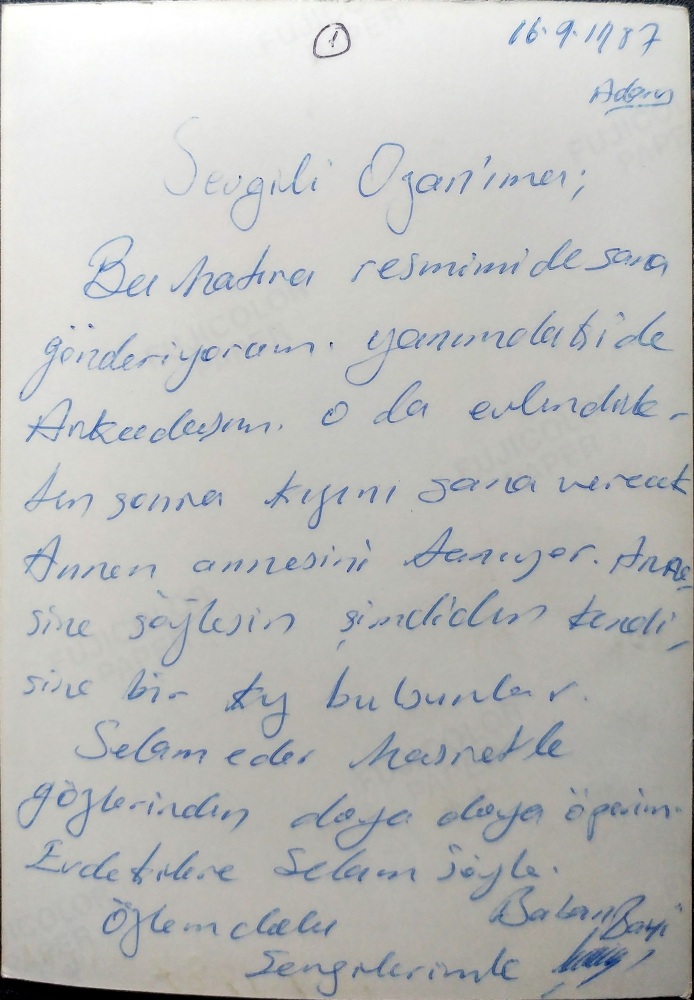 1
16.9.1987
Sevgili Ozan'ıma;
Bu hatıra resmimi de sana
gönderiyorum. yanımdaki de
Arkadaşım. o da evlendik-
ten sonra kızını sana verecek
Annen annesini tanıyor. Anne-
sine söylesin şimdiden kendi-
sine bir kız bulsunlar.
Selam eder hasretle
gözlerinden doya doya öperim.
Evdekilere Selam söyle.
Özlem dolu Baban
Sevgilerimle